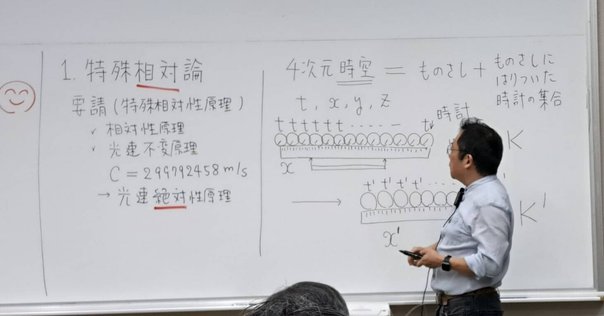 1. 特殊相対論
要請(特殊相対性原理)
✓ 相対性原理
✓ 光速不変原理
C = 299792458 m/s
→ 光速絶対性原理
4次元時空 = ものさし + ものさしに
はりついた
時計の集合
t, x, y, z
時計
t t t t t t ･････ t
K
x
→
t' t' t' t' ･･･
K'
x'